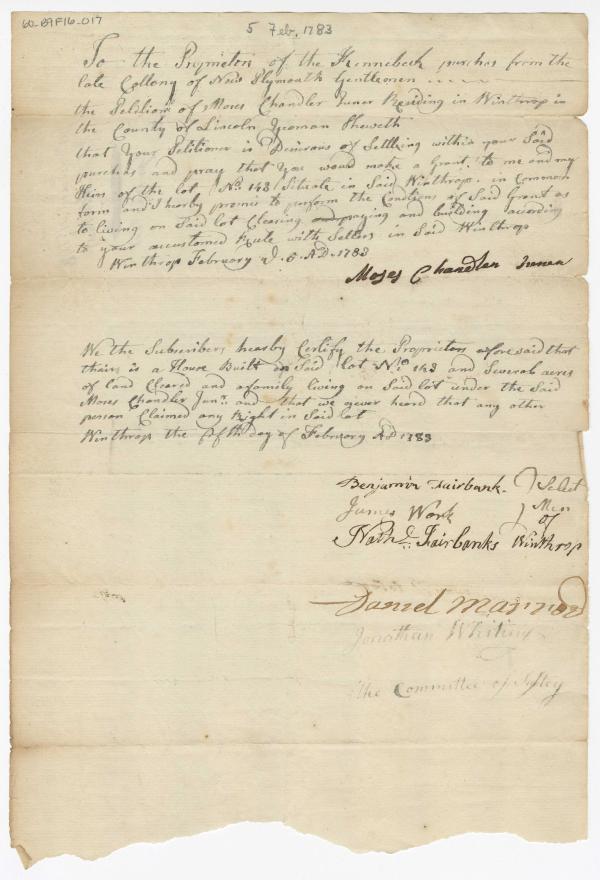 60-B9F16-017
5 Feb. 1783
To the Proprietors of the Kennebeck purchas from the
late Collony of New Plymouth Gentlemen
the Petition of Moses Chandler Juner Residing in Winthrop in
the County of Lincoln Yeoman Sheweth
that Your Petitioner is Desirous of Settling within your Said
purchas and pray that You would make a Grant to me and my
Heirs of the lot No 143 Situate in Said Winthrop in Common
form and I hereby promis to perform the Conditions of Said Grant as
to living on Said lot Clearing and building according
to your accustomed Rule with Setlers in Said Winthrop
Winthrop February 5 AD. 1783
Moses Chandler Juner
We the Subscribers hearby Certify the Proprietors afore said that
thair is a House Built on Said lot No 143 and Several acres
of land Cleared and a family living on Said lot under the Said
Moses Chandler Junr. and that we never heard that any other
person Claimed any Right in Said lot
Winthrop the fifth day of February AD 1783
Benjamin Fairbank. } Select
James Work } Men
of
Nathl. Fairbanks Winthrop
Daniel
Jonathan Whiting
the Committee of Safty